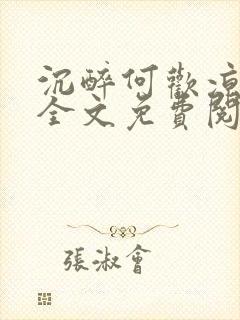 沉醉何歡涼
全文免費閱
張淑會